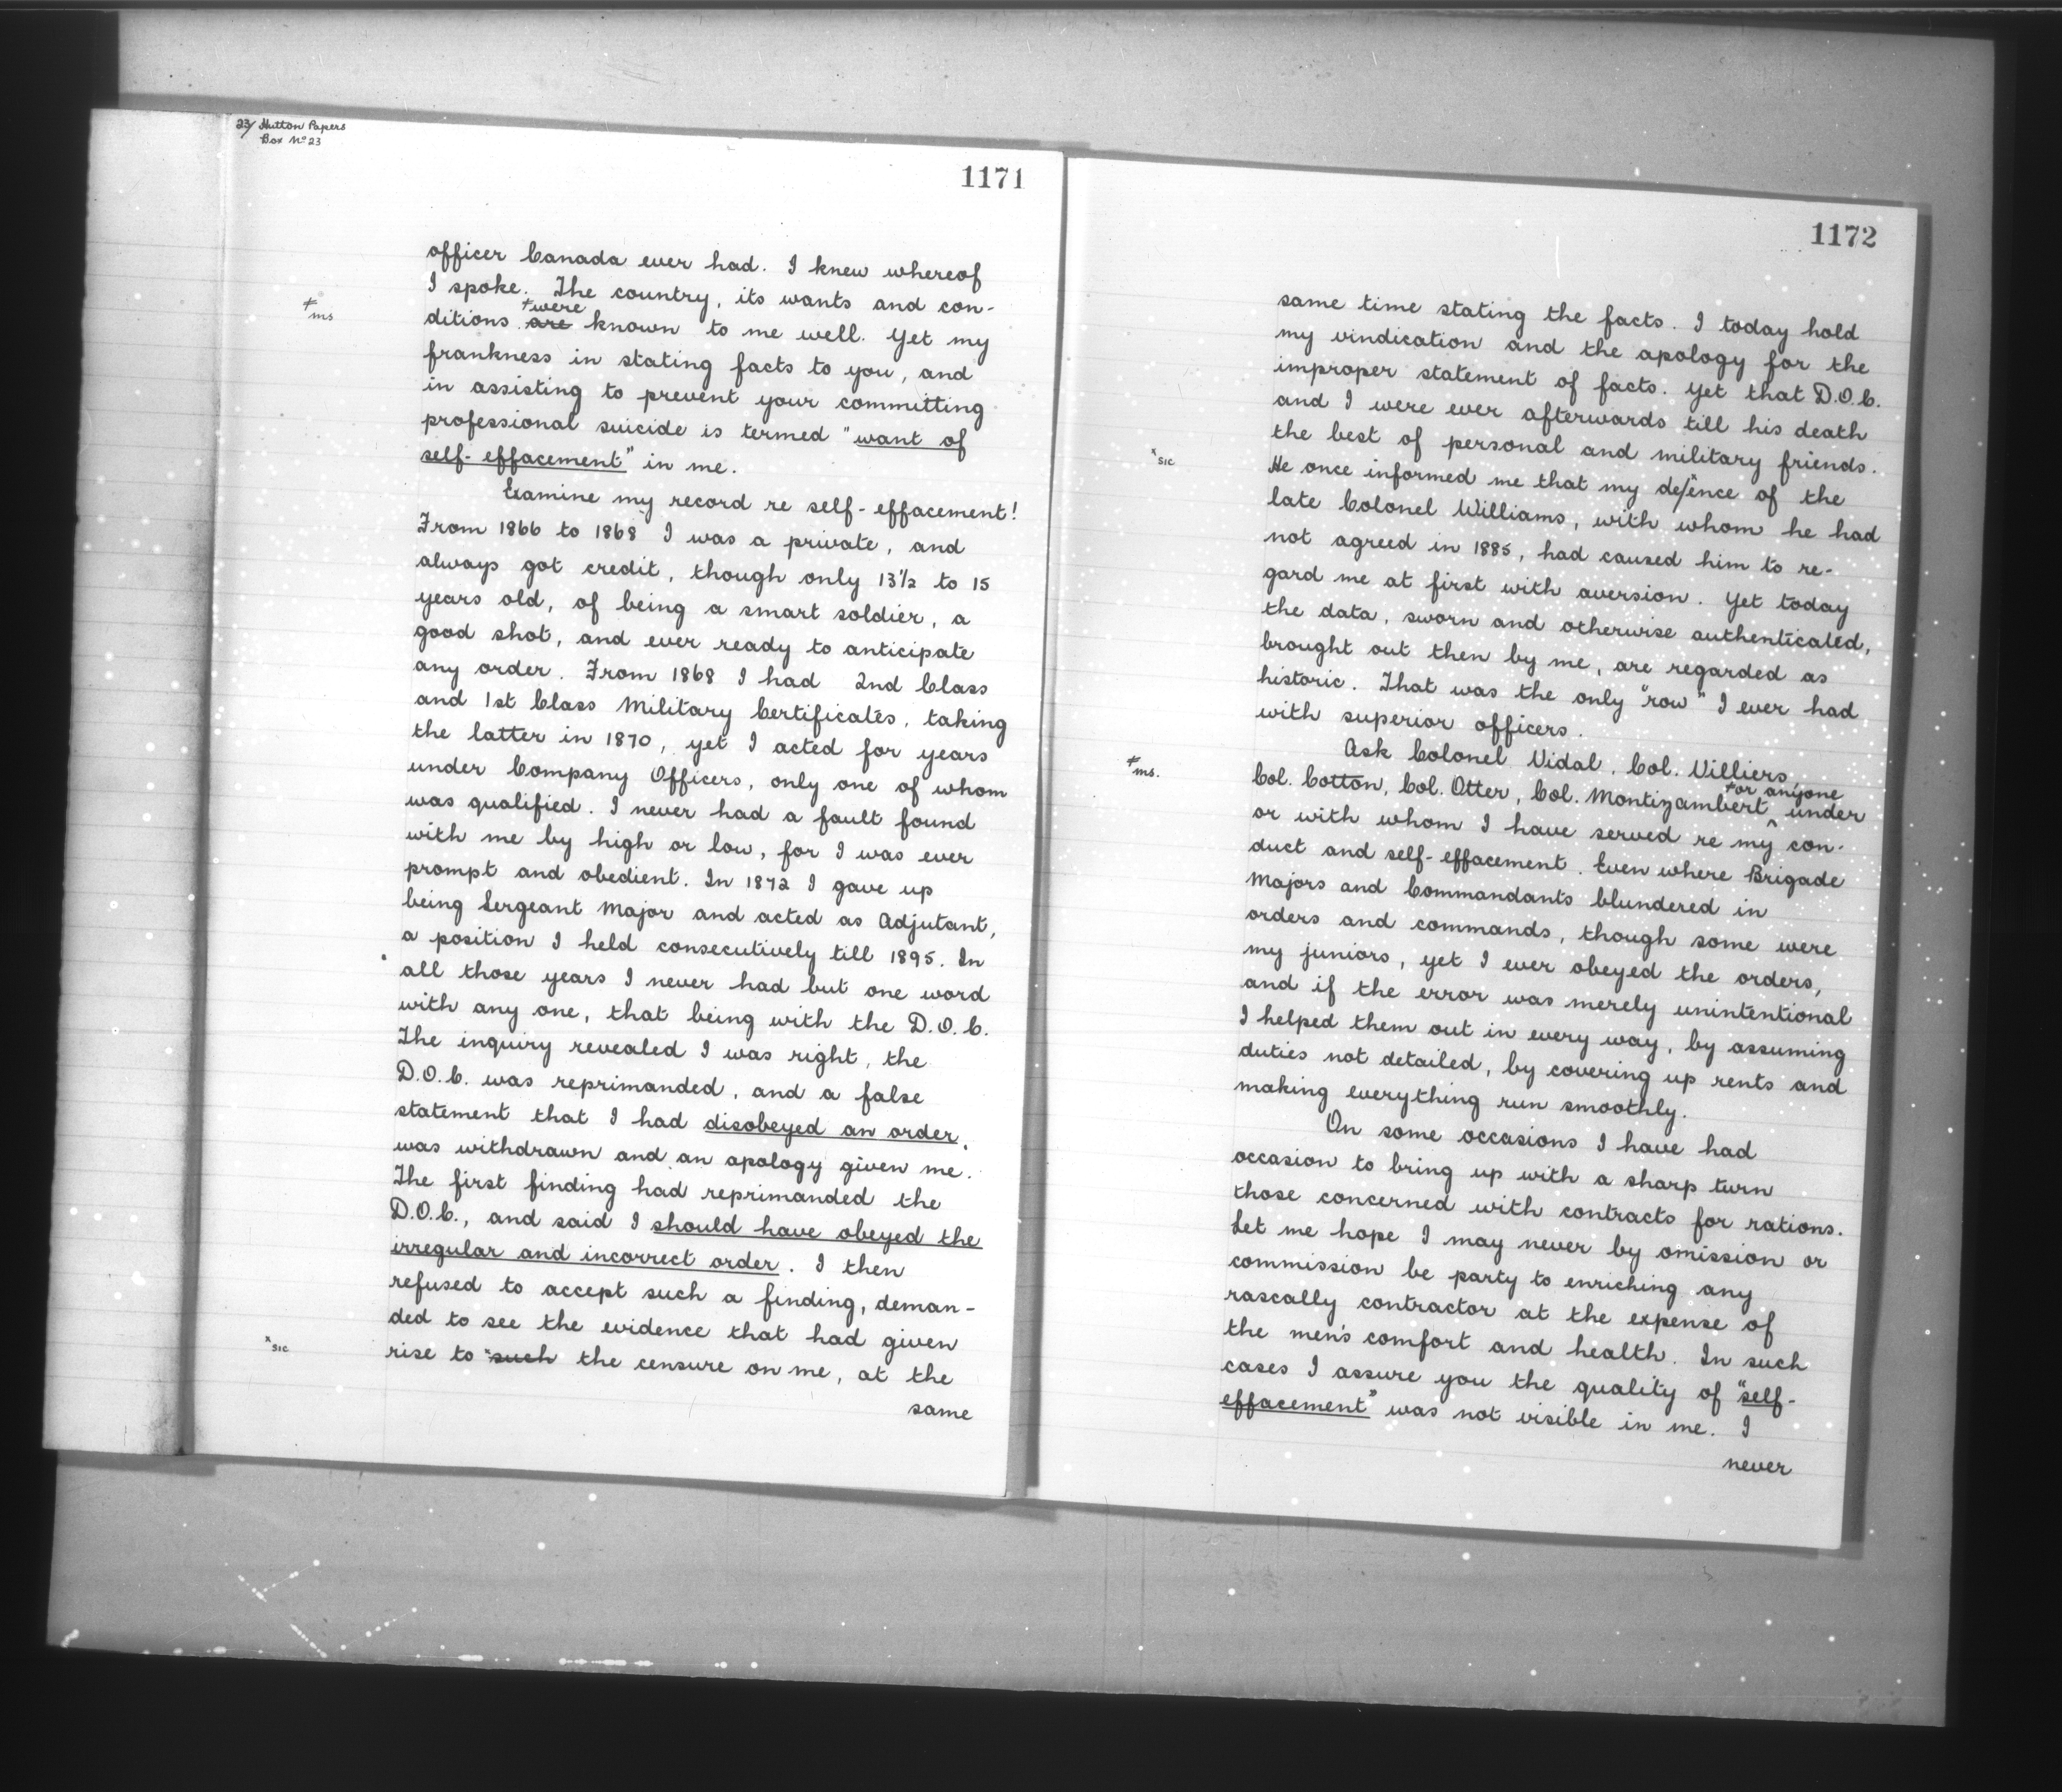 23/ Hutton Papers
Box No 23
1171
officer Canada ever had. I knew whereof
I spoke. The country, its wants and con-
≠were
≠ms
ditions are known to me well. Yet my
frankness in stating facts to you, and
in assisting to prevent your committing
professional suicide is termed "want of
self-effacement" in me.
Examine my record re self-effacement!
From 1866 to 1868 I was a private, and
always got credit, though only 13½ to 15
years old, of being a smart soldier, a
good shot, and ever ready to anticipate
any order. From 1868 I had 2nd Class
and 1st Class Military Certificates, taking
the latter in 1870, yet I acted for years
under Company Officers, only one of whom
was qualified. I never had a fault found
with me by high or low, for I was ever
prompt and obedient. In 1872 I gave up
being Sergeant Major and acted as Adjutant,
a position I held consecutively till 1895. In
all those years I never had but one word
with any one, that being with the D.O.C.
The inquiry revealed I was right, the
D.O.C. was reprimanded, and a false
statement that I had disobeyed an order,
was withdrawn and an apology given me.
The first finding had reprimanded the
D.O.C., and said I should have obeyed the
irregular and incorrect order. I then
refused to accept such a finding, deman-
ded to see the evidence that had given
x sic
rise to xsuch the censure on me, at the
same
1172
same time stating the facts. I today hold
my vindication and the apology for the
improper statement of facts. Yet that D.O.C.
and I were ever afterwards till his death
the best of personal and military friends.
x sic
He once informed me that my defence of the
late Colonel Williams, with whom he had
not agreed in 1885, had caused him to re-
gard me at first with aversion. Yet today
the data, sworn and otherwise authenticated,
brought out then by me, are regarded as
historic. That was the only "row" I ever had
with superior officers.
Ask Colonel Vidal, Col. Villiers,
≠or anyone
≠ms.
Col. Cotton, Col. Otter, Col. Montizambert ^ under
or with whom I have served re my con-
duct and self-effacement. Even where Brigade
Majors and Commandants blundered in
orders and commands, though some were
my juniors, yet I ever obeyed the orders,
and if the error was merely unintentional
I helped them out in every way, by assuming
duties not detailed, by covering up rents and
making everything run smoothly.
On some occasions I have had
occasion to bring up with a sharp turn
those concerned with contracts for rations.
Let me hope I may never by omission or
commission be party to enriching any
rascally contractor at the expense of
the men's comfort and health. In such
cases I assure you the quality of "self-
effacement" was not visible in me. I
never